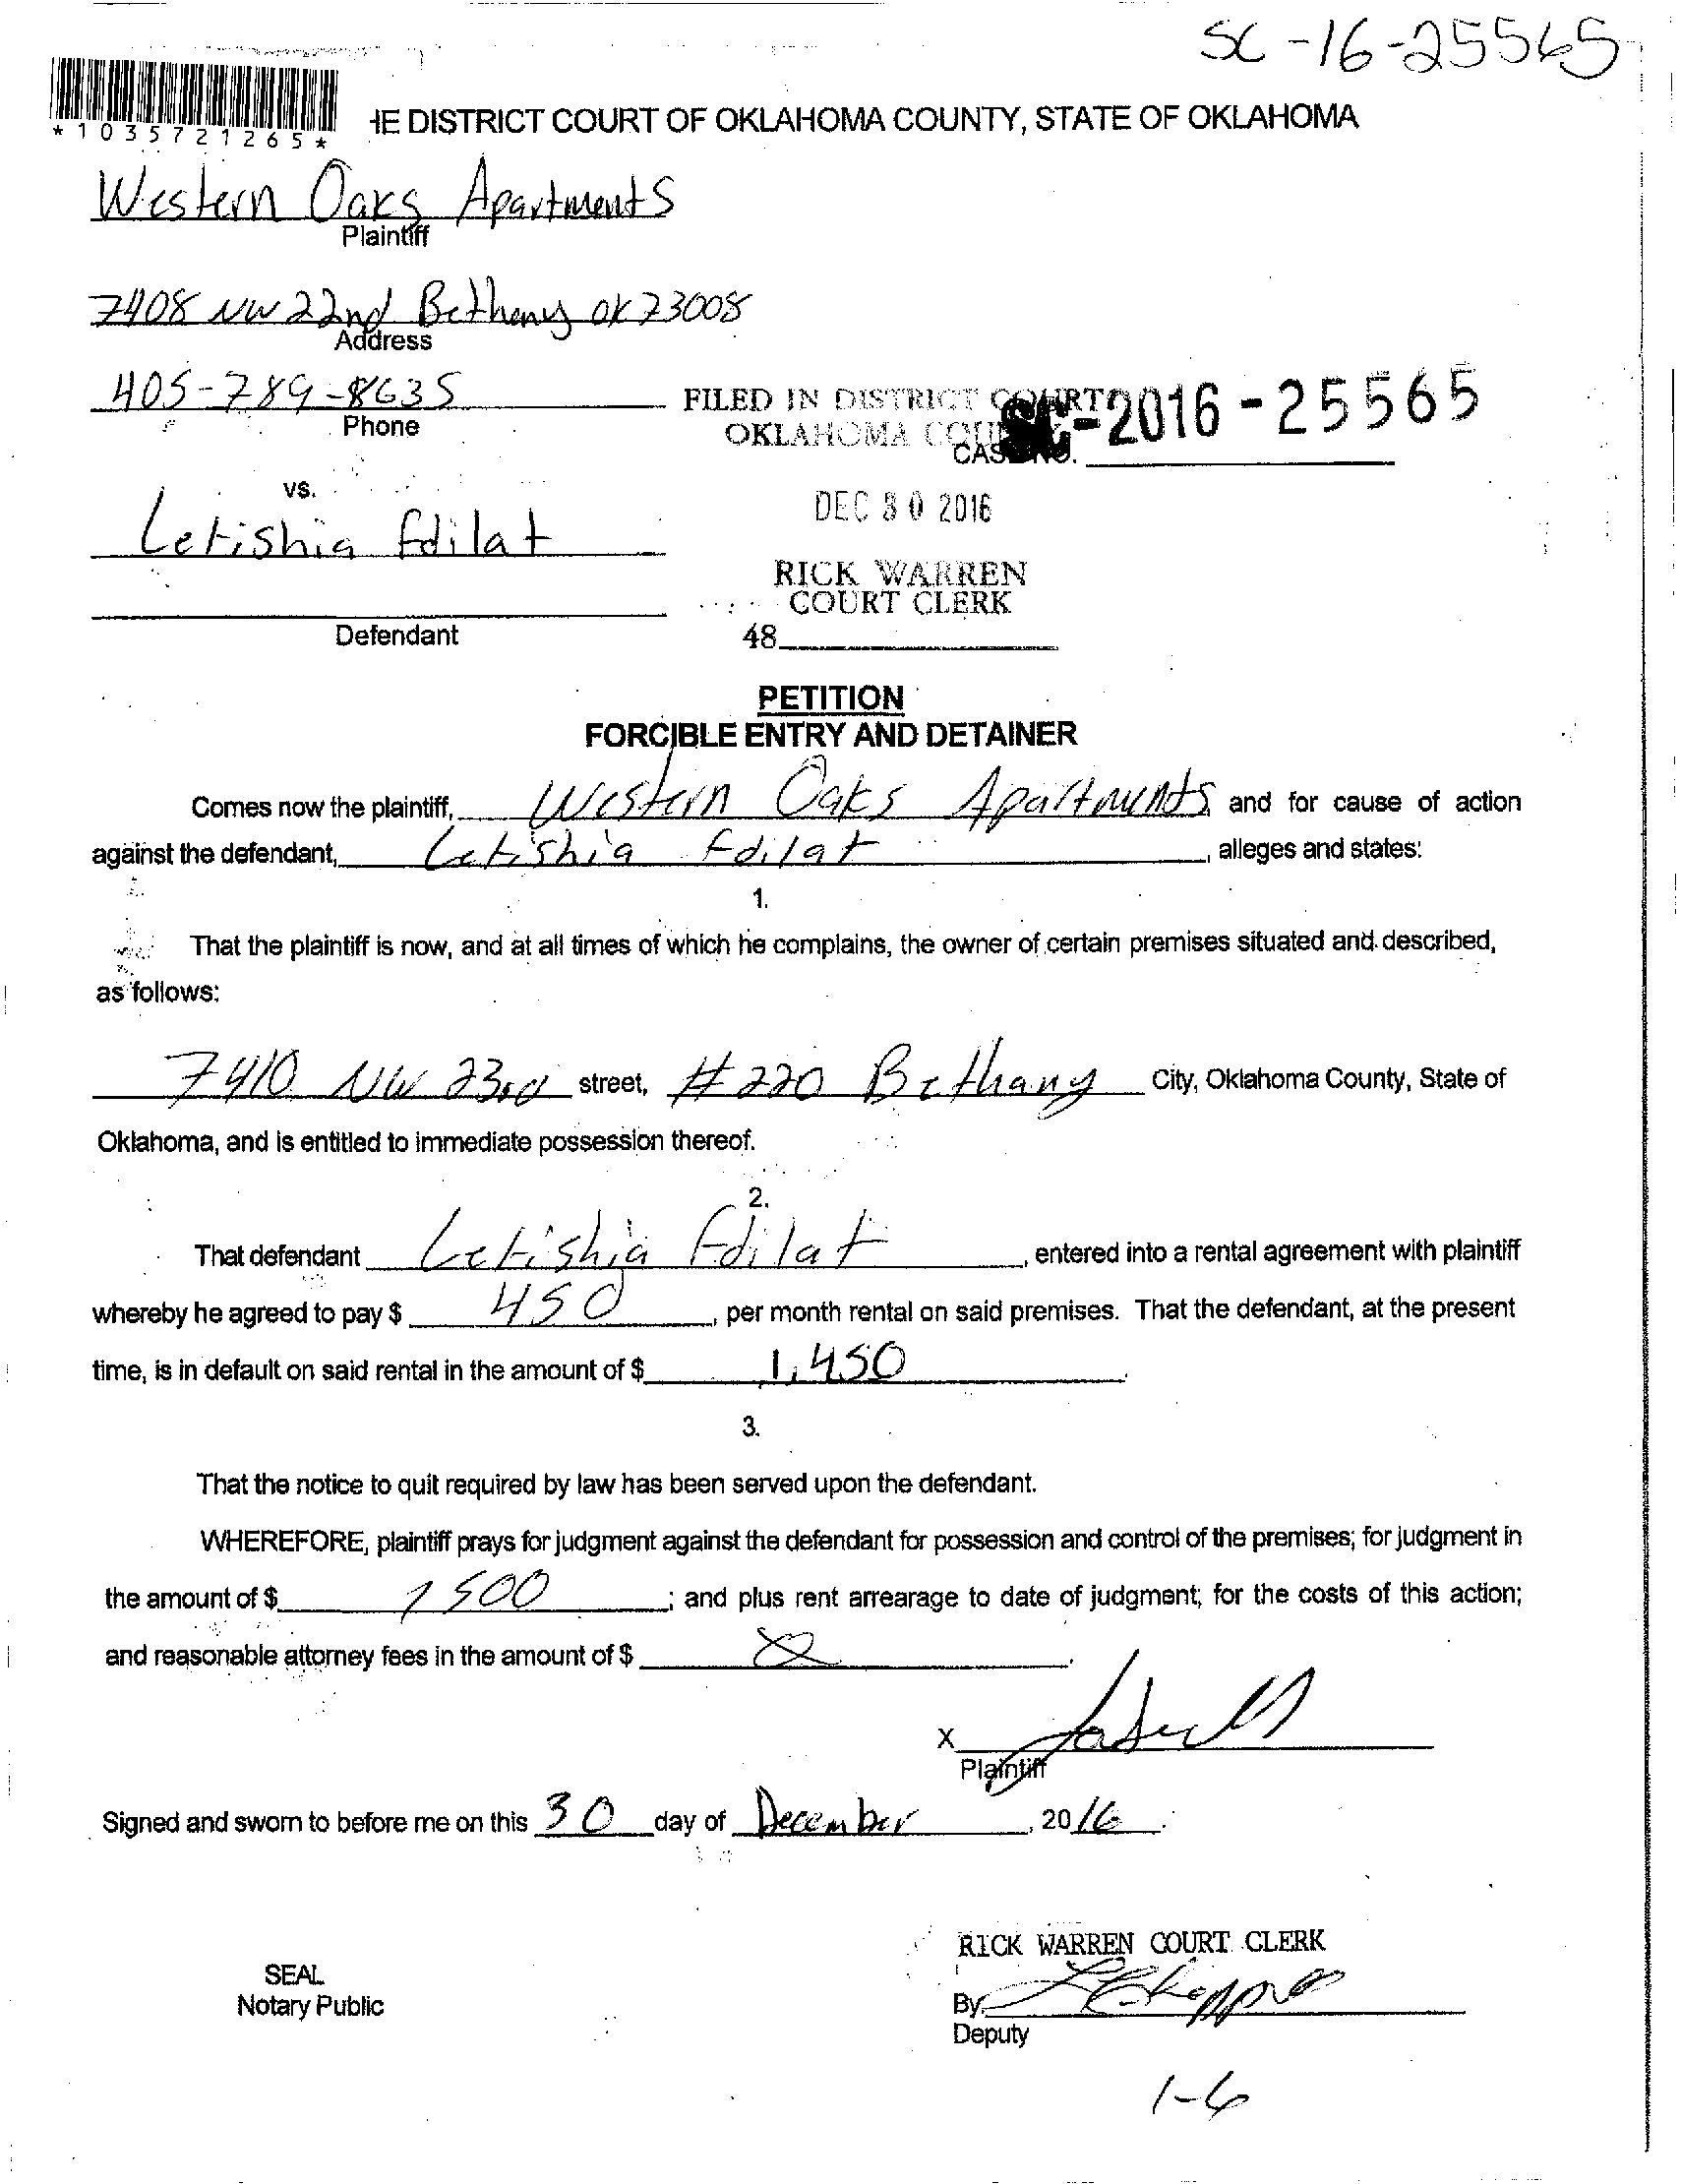 SC-16-25565
*1035721265*
HE DISTRICT COURT OF OKLAHOMA COUNTY, STATE OF OKLAHOMA
Western Oaks Apartments
Plaintiff
7408 NW 22nd Bethany OK 73008
Address
405-789-8635
Phone
FILED IN DISTRICT COURT
OKLAHOMA COUNTY
CASE NO. SC-2016-25565
vs.
DEC 30 2016
Letishia Edilat
RICK WARREN
COURT CLERK
Defendant
48
PETITION
FORCIBLE ENTRY AND DETAINER
Comes now the plaintiff, Western Oaks Apartments and for cause of action
against the defendant, Letishia Edilat, alleges and states:
1.
That the plaintiff is now, and at all times of which he complains, the owner of certain premises situated and described,
as follows:
7410 NW 23rd street, #220 Bethany City, Oklahoma County, State of
Oklahoma, and is entitled to immediate possession thereof.
2.
That defendant Letishia Edilat, entered into a rental agreement with plaintiff
whereby he agreed to pay $ 450, per month rental on said premises. That the defendant, at the present
time, is in default on said rental in the amount of $ 1,450.
3.
That the notice to quit required by law has been served upon the defendant.
WHEREFORE, plaintiff prays for judgment against the defendant for possession and control of the premises; for judgment in
the amount of $ 1500; and plus rent arrearage to date of judgment; for the costs of this action;
and reasonable attorney fees in the amount of $
X
Plaintiff
Signed and sworn to before me on this 30 day of December, 2016.
RICK WARREN COURT CLERK
SEAL
Notary Public
By
Deputy
1-6